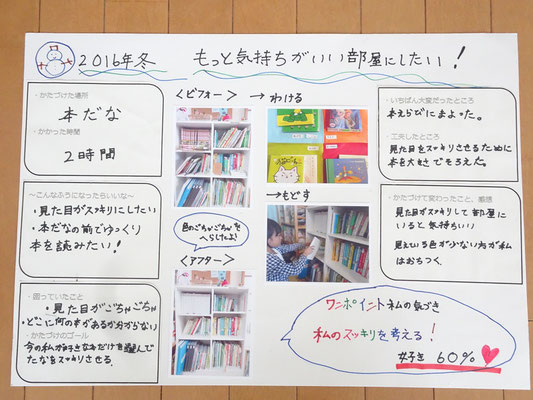 2016年冬 もっと気持ちがいい部屋にしたい!
・かたづけた場所
本だな
・かかった時間
2時間
〜こんなふうになったらいいな〜
・見た目がスッキリにしたい
・本だなの前でゆっくり
本を読みたい!
・困っていたこと
・見た目がごちゃごちゃ
・どこに何の本があるか分からない
・かたづけのゴール
今の私が好きなだけを選んで
たなをスッキリさせる
<ビフォー>
色のごちゃごちゃを
へらしたよ!
<アフター>
→わける
→もどす
・いちばん大変だったところ
本えらびにまよった。
・工夫したところ
見た目をスッキリさせるために
本を大きさでそろえた。
・かたづけて変わったこと、感想
見た目がスッキリして部屋に
いると気持ちいい
見えている色が少ない方が私
はおちつく。
ワンポイント私の気づき
私のスッキリを考える!
好き 60%